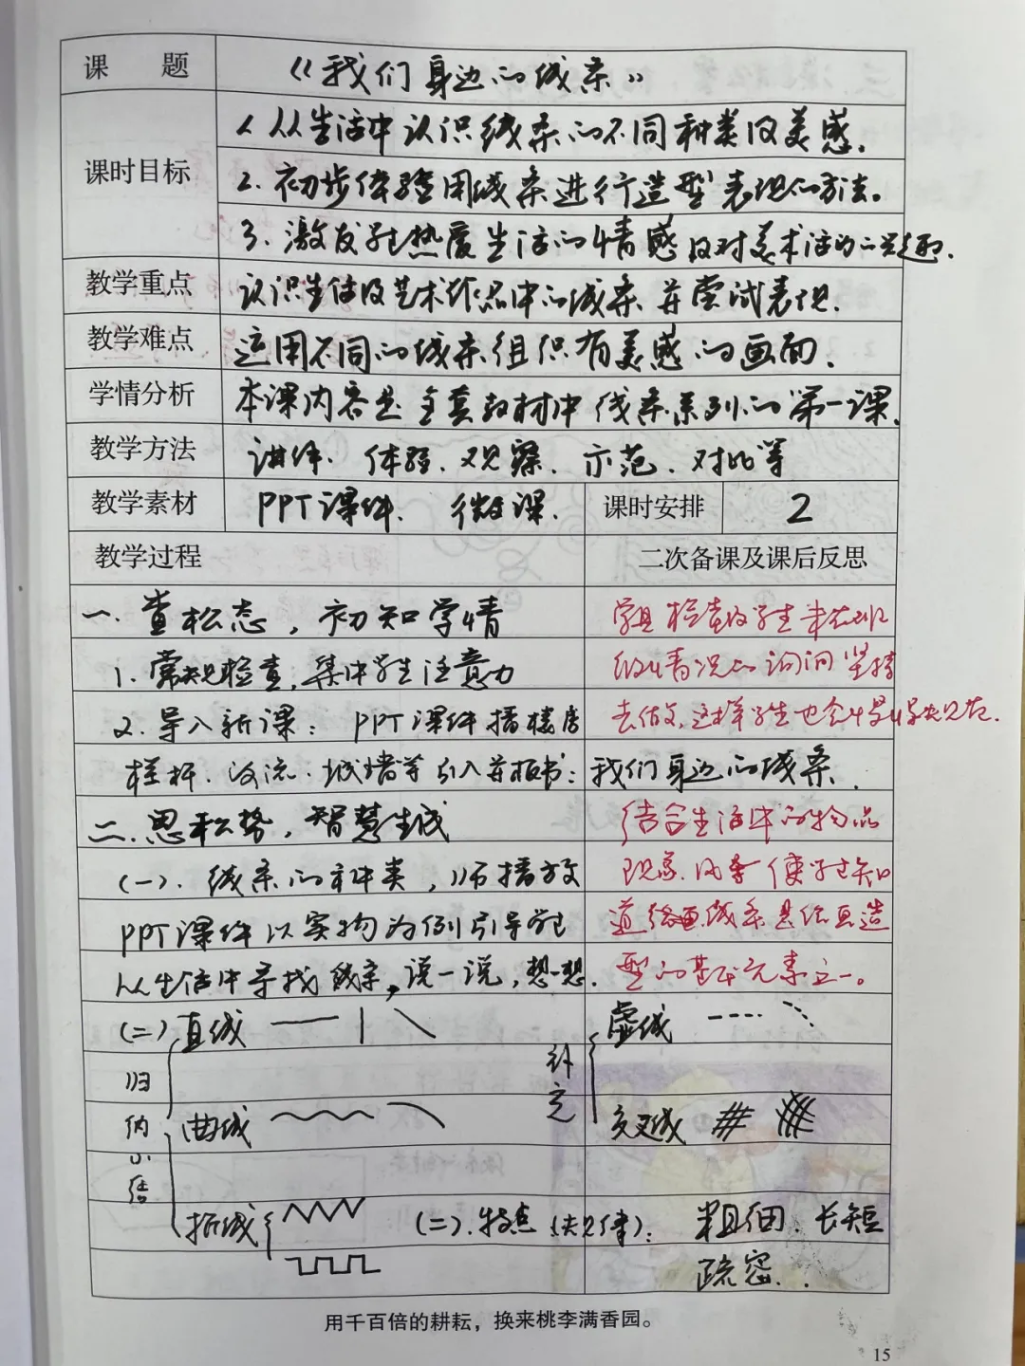 课 题 《我们身边的线条》
课时目标
1. 从生活中认识线条的不同种类及美感.
2. 初步体验用线条进行造型表现的方法。
3. 激发学生热爱生活的情感及对美术活动的兴趣.
教学重点 认识生活及艺术作品中的线条并尝试表现.
教学难点 运用不同的线条组织有美感的画面.
学情分析 本课内容是全套教材中线条系列的第一课.
教学方法 讲解. 体验. 观察. 示范. 对比等
教学素材 PPT课件. 微课. 课时安排 2
教学过程 二次备课及课后反思
一. 查松态, 初知学情
1. 常规检查, 集中学生注意力
2. 导入新课: PPT课件播楼房
栏杆. 河流. 城墙等引入并板书: 我们身边的线条.
二. 思积势, 智慧生成
(一). 线条的种类, 师播放
PPT课件以实物为例引导学生
从生活中寻找线条, 说一说, 想一想.
学具检查及学生
情况的询问坚持
去做, 这样学生也会
结合生活中的物品
现象. 使学生知
道线条是绘画造
型的基本元素之一。
(二) 直线
归纳小结
曲线
折线
补充
虚线
交叉线
(二). 特点(规律): 粗细. 长短
疏密..
用千百倍的耕耘，换来桃李满香园。
15